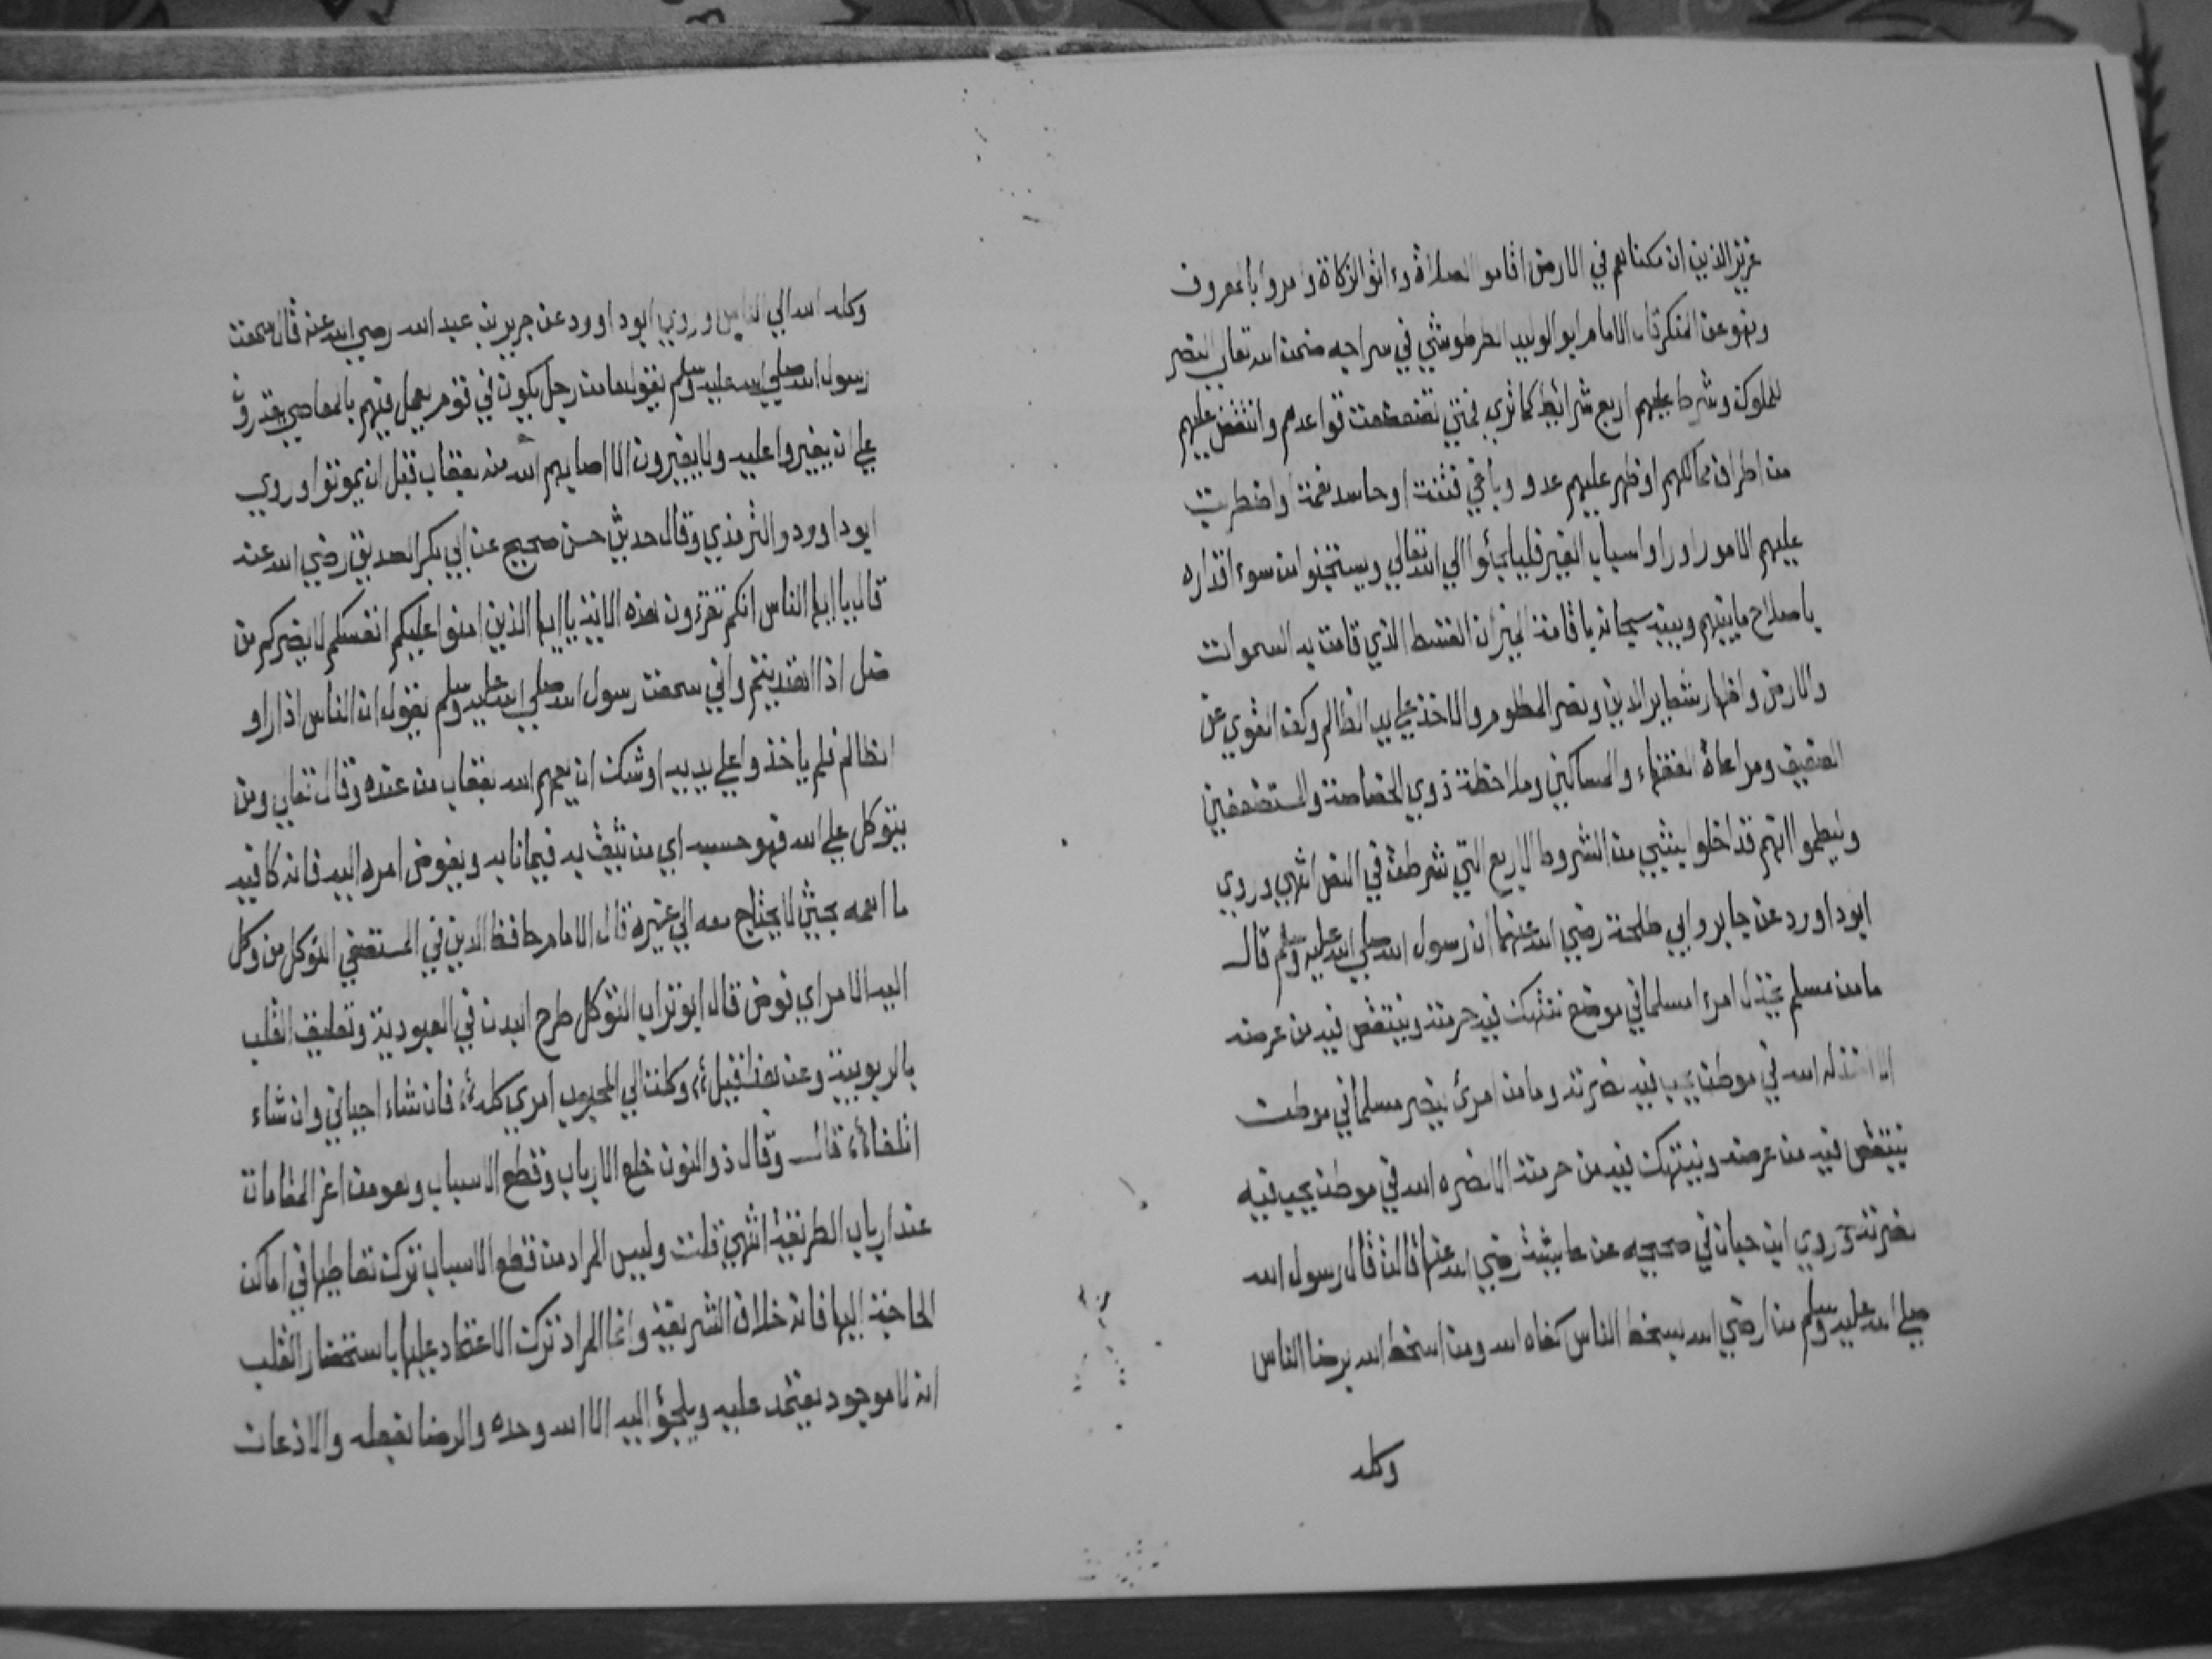 عزيز الذين ان مكناهم في الارض اقاموا الصلاة وءاتوا الزكاة وامروا بالمعروف
ونهو عن المنكر قال الامام ابو الوليد الطرطوشي في سراجه ضمن الله تعالى النصر
للملوك وشرط عليهم اربع شرائط كما ترى فمتى تضعضعت قواعدهم وانتقض عليهم
من اطراف ممالكهم او ظهر عليهم عدو وباغي فتنة او حاسد نعمة واضطربت
عليهم الامور او راوا اسباب الغير فليلجئوا الي الله تعالي ويستجنوا من سوء اقداره
باصلاح ما بينهم وبينه سبحانه باقامة الميزان القسط الذي قامت به السموات
والارض واظهار شعاير الدين ونصر المظلوم والاخذ علي يد الظالم وكف القوي عن
الضعيف ومراعاة الفقراء والمساكين وملاحظة ذوي الخصاصة والمستضعفين
وليعلموا انهم قد اخلوا بشيي من الشروط الاربع التي شرطت في النص انتهي وروي
ابو داوود عن جابر وابي طلحة رضي الله عنهما ان رسول الله صلي الله عليه وسلم قال
مامن مسلم يخذل امرءا مسلما في موضع تنتهك فيه حرمته وينتقص فيه من عرضه
الا خذله الله في موطن يحب فيه نصرته وما من امرئ ينصر مسلما في موطن
ينتقص فيه من عرضه وينتهك فيه من حرمته الا نصره الله في موطن يحب فيه
نصرته وروي ابن حبان في صحيحه عن عايشة رضي الله عنها قالت قال رسول الله
صلي الله عليه وسلم من ارضي الله بسخط الناس كفاه الله ومن اسخط الله برضا الناس
وكله
وكله الله الي الناس وروي ابو داوود عن جرير بن عبد الله رضي الله عنه قال سمعت
رسول الله صلي الله عليه وسلم يقول مامن رجل يكون في قوم يعمل فيهم بالمعاصي يقدرون
علي ان يغيروا عليه ولا يغيرون الا اصابهم الله منه بعقاب قبل ان يموتوا وروي
ابو داوود والترمذي وقال حديث حسن صحيح عن ابي بكر الصديق رضي الله عنه
قال يا ايها الناس انكم تقرءون هذه الاية يا ايها الذين امنوا عليكم انفسكم لا يضركم من
ضل اذا اهتديتم واني سمعت رسول الله صلي الله عليه وسلم يقول ان الناس اذا راو
الظالم فلم ياخذوا علي يديه اوشك ان يعمهم الله بعقاب من عنده وقال تعالي ومن
يتوكل علي الله فهو حسبه اي من يثيق به فيما نابه ويفوض امره اليه فانه كافيه
ما اهمه بحيث لا يحتاج معه الي غيره قال الامام حافظ الدين في المستصفي التوكل من وكل
اليه الامر اي فوض قال ابو تراب التوكل طرح البدن في العبودية وتعليق القلب
بالربوبية وعن هذا قيل وكلت الي المحبوب امري كله فان شاء احياني وان شاء
اتلفا قال وقال ذو النون خلع الارباب وقطع الاسباب وهو من اعز المقامات
عند ارباب الطريقة انتهي قلت وليس المراد من قطع الاسباب ترك تعاطيها في اماكن
الحاجة اليها فانه خلاف الشريعة وانما المراد ترك الاعتماد عليها باستحضار القلب
انه لا موجود يعتمد عليه ويلجؤ اليه الا الله وحده والرضا بفعله والاذعان